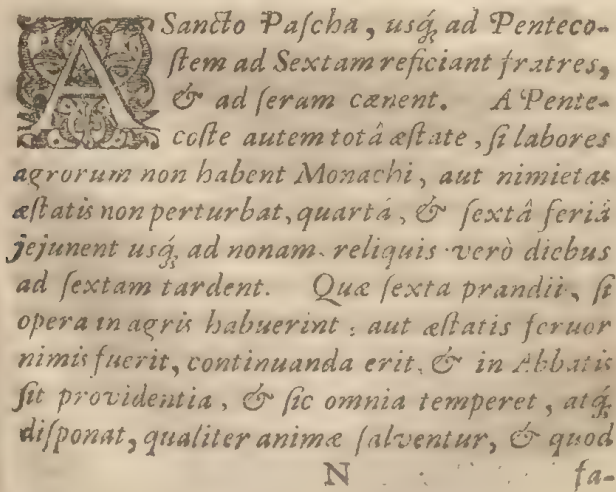 A Sancto Paſcha, uſq́; ad Penteco-
ſtem ad Sextam reficiant fratres,
& ad ſeram cænent. A Pente-
coſte autem totâ æſtate, ſi labores
agrorum non habent Monachi, aut nimietas
æſtatis non perturbat, quartâ, & ſextâ feriâ
jejunent uſq́; ad nonam. reliquis verò diebus
ad ſextam tardent. Quæ ſexta prandii, ſi
opera in agris habuerint: aut æſtatis fervor
nimis fuerit, continuanda erit, & in Abbatis
ſit providentia, & ſic omnia temperet, atq́;
diſponat, qualiter animæ ſalventur, & quod
N fa-